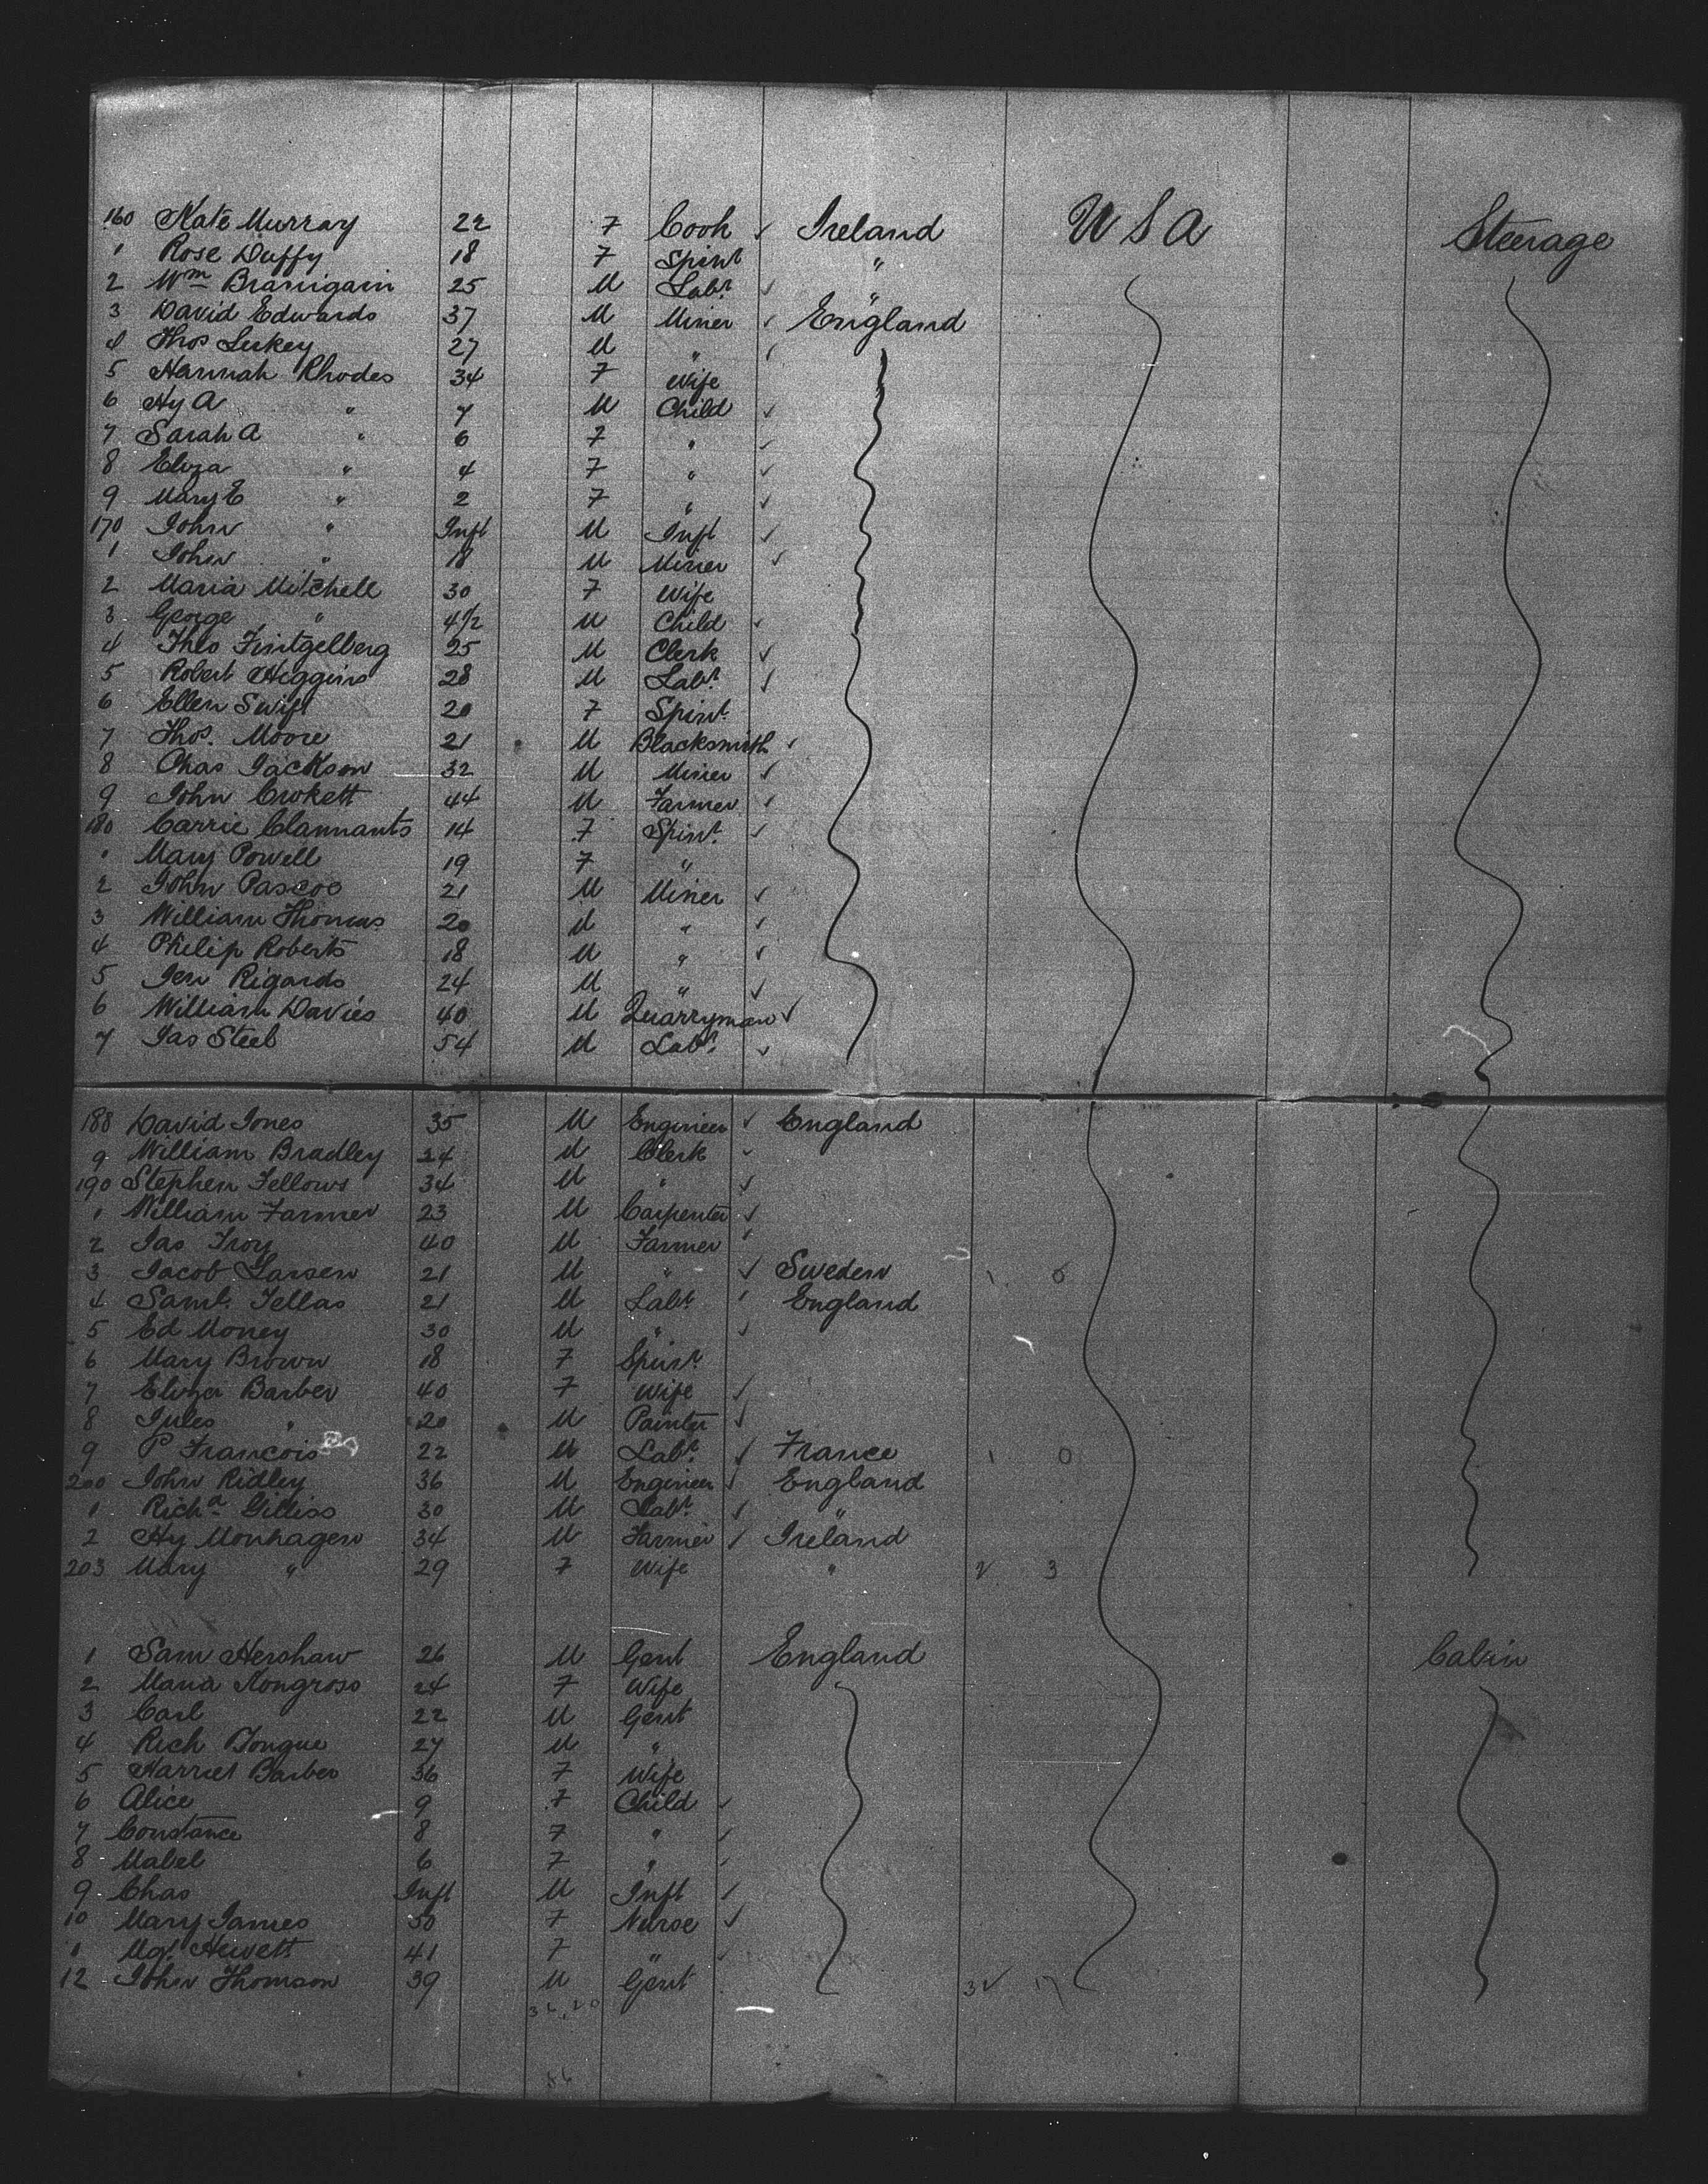 160 Kate Murray 22 F Cook ✓ Ireland U S A Steerage
1 Rose Duffy 18 F Spinr "
2 Wm Branigain 25 M Labr ✓ "
3 David Edwards 37 M Miner ✓ England
4 Thos Lukey 27 M " ✓
5 Hannah Rhodes 34 F Wife
6 Hy A " 7 M Child ✓
7 Sarah A " 6 F " ✓
8 Eliza " 4 F " ✓
9 Mary E " 2 F " ✓
170 John " Inft M Inft ✓
1 John " 18 M Miner ✓
2 Maria Mitchell 30 F Wife
3 George " 4 1/2 M Child ✓
4 Theo 25 M Clerk ✓
5 Robert Higgins 28 M Labr ✓
6 Ellen Swift 20 F Spinr
7 Thos. Moore 21 M Blacksmith ✓
8 Chas Jackson 32 M Miner ✓
9 John Crokett 44 M Farmer ✓
180 Carrie Clannants 14 F Spinr ✓
1 Mary Powell 19 F "
2 John Pascoe 21 M Miner ✓
3 William Thomas 20 M " ✓
4 Philip Roberts 18 M " ✓
5 Rigards 24 M " ✓
6 William Davies 40 M Quarryman ✓
7 Jas Steel 54 M Labr ✓
188 David Jones 35 M Engineer ✓ England
9 William Bradley 24 M Clerk ✓
190 Stephen Fellows 34 M " ✓
1 William Farmer 23 M Carpenter ✓
2 Jas Troy 40 M Farmer ✓
3 Jacob Larsen 21 M " ✓ Sweden 1
4 Saml. Tellas 21 M Labr ✓ England
5 Ed Money 30 M " ✓
6 Mary Brown 18 F Spinr
7 Eliza Barber 40 F Wife ✓
8 Jules " 20 M Painter ✓
9 P Francois 22 M Labr ✓ France 1 0
200 John Ridley 36 M Engineer ✓ England
1 Richd Gilliss 30 M Labr ✓ "
2 Hy Monhagen 34 M Farmer ✓ Ireland
203 Mary " 29 F Wife " 2 3
1 Sam Hershaw 26 M Gent England Cabin
2 Maria Kongross 24 F Wife
3 Carl 22 M Gent
4 Rich Tongue 27 M "
5 Harriet Barber 36 F Wife
6 Alice 9 F Child ✓
7 Constance 8 F " ✓
8 Mabel 6 F " ✓
9 Chas Inft M Inft ✓
10 Mary James 50 F Nurse ✓
1 Mgt. Hewett 41 F " ✓
12 John Thomson 39 M Gent